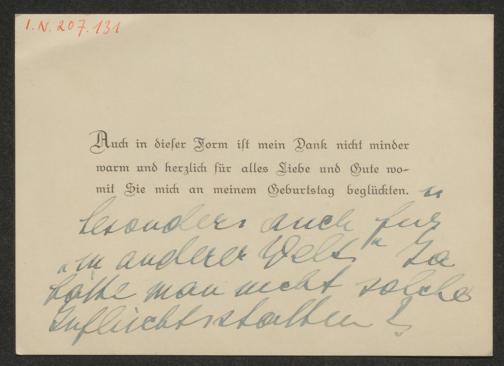 I.N. 207.131
Auch in dieser Form ist mein Dank nicht minder
warm und herzlich für alles Liebe und Gute wo-
mit Sie mich an meinem Geburtstag beglückten.
besonders auch für
„in anderer Welt“ Ja
hätte man nicht solche
Zufluchtsstätten!